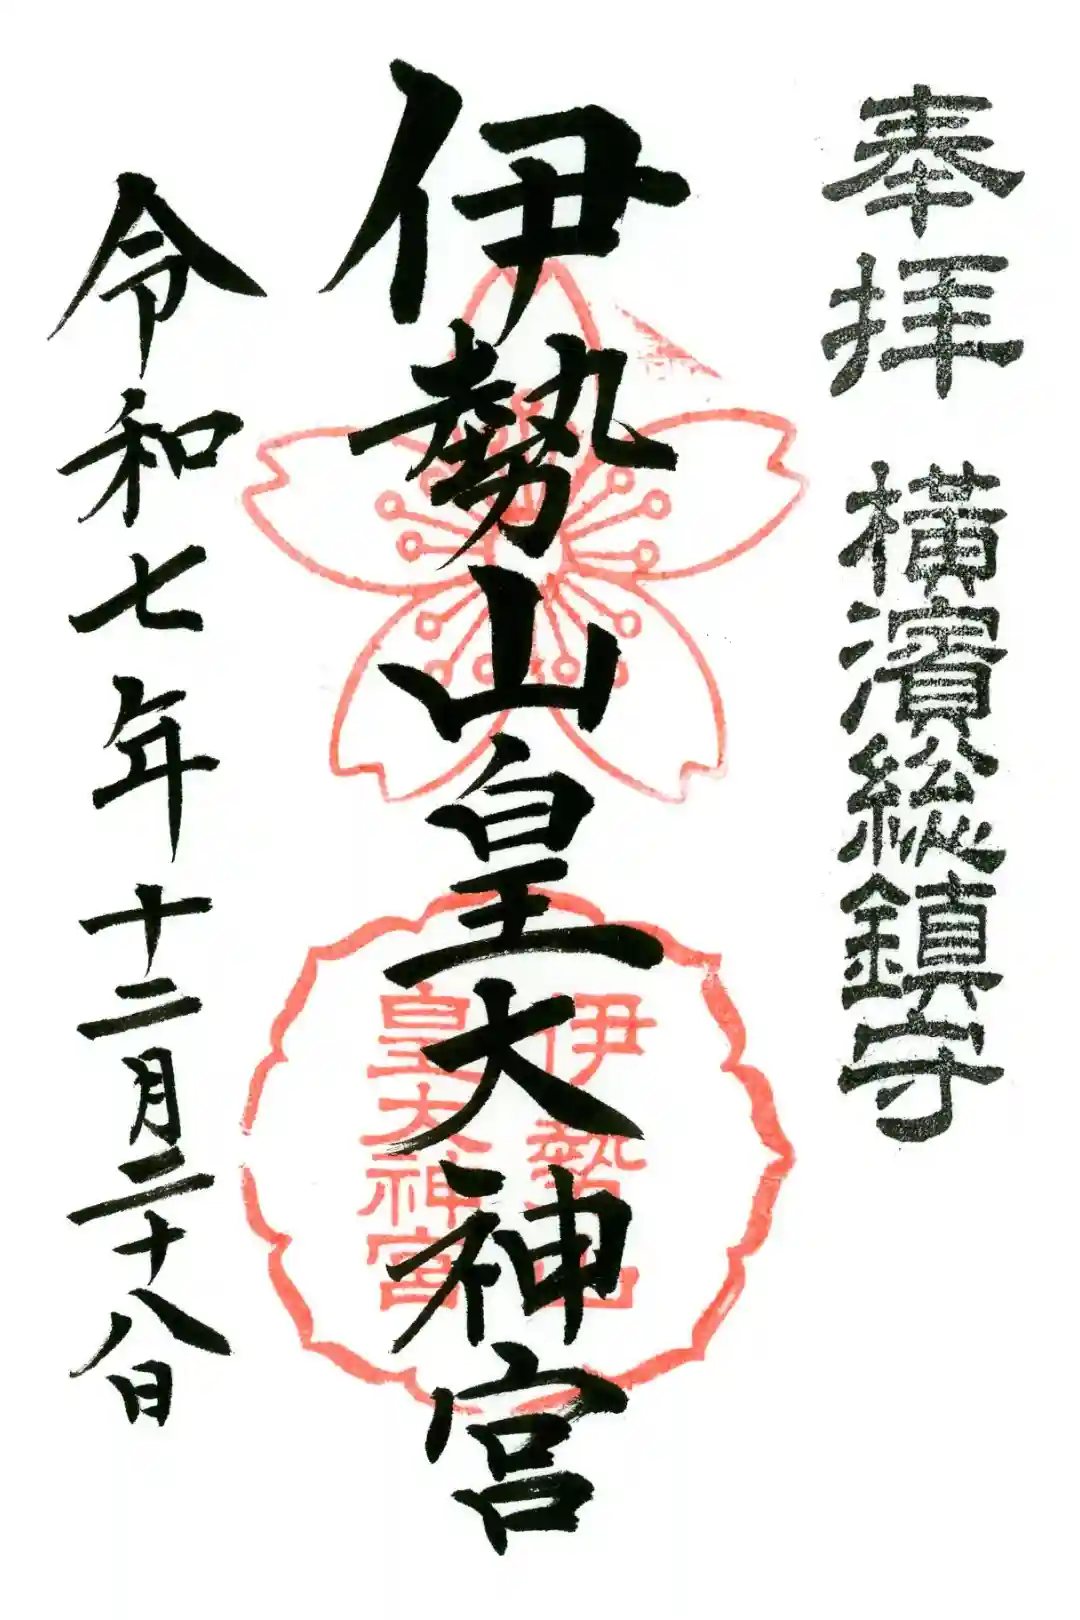 奉拝 横濱総鎮守
伊勢山皇大神宮
伊勢山
皇大神宮
令和七年十二月二十八日